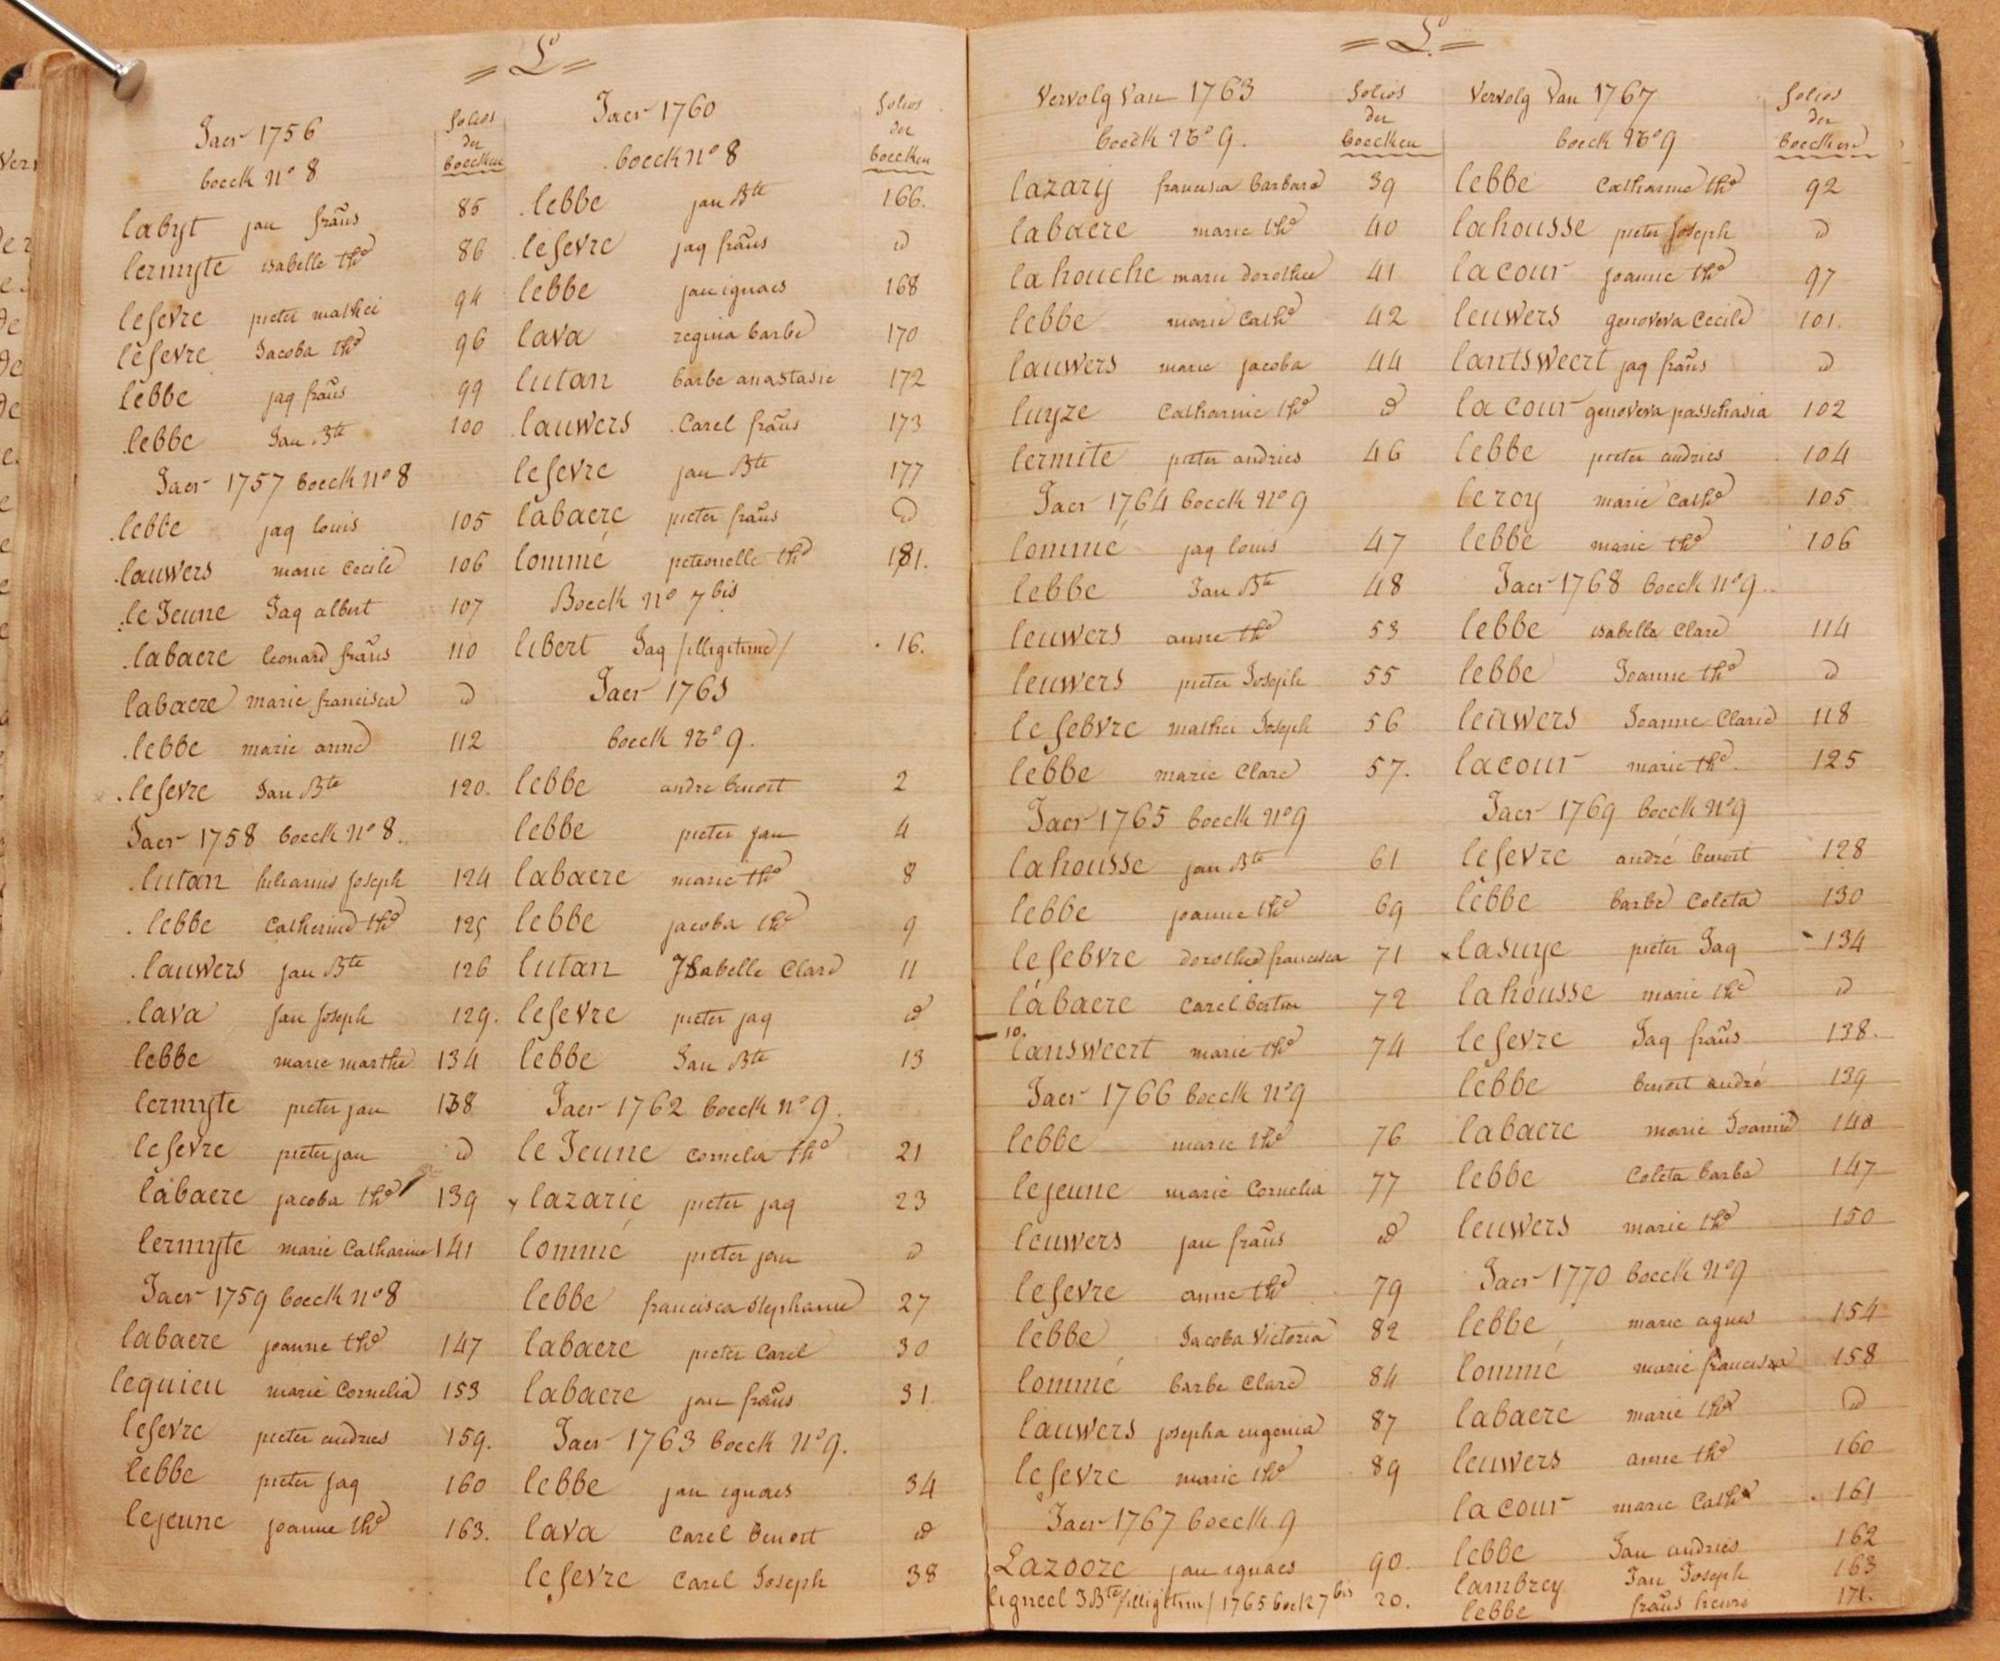 L
Jaer 1756
boeck N° 8
folios
der
boecken
labyt jan frañs 85
lermyte isabelle thē 86
lefevre pieter mathei 94
lefevre Jacoba thē 96
lebbe jaq frañs 99
lebbe Jan Bte 100
Jaer 1757 boeck N° 8
lebbe jaq louis 105
lauwers marie Cecile 106
le Jeune Jaq albert 107
labaere leonard frañs 110
labaere marie francisca id
lebbe marie anne 112
lefevre Jan Bte 120.
Jaer 1758 boeck N° 8.
lutan hilarius Joseph 124
lebbe Catherine thē 125
lauwers jan Bte 126
lava Jan Joseph 129.
lebbe marie marthe 134
lermyte pieter jan 138
lefevre pieter jan id
labaere jacoba thē 139
lermyte marie Catharine 141
Jaer 1759 boeck N° 8
labaere joanne thē 147
lequieu marie Cornelia 153
lefevre pieter andries 159.
lebbe pieter jaq 160
lejeune joanne thē 163.
Jaer 1760
boeck N° 8
folios
der
boecken
lebbe jan Bte 166.
lefevre jaq frañs id
lebbe jan ignaes 168
lava regina barbe 170
lutan barbe anastasie 172
lauwers Carel frañs 173
lefevre jan Bte 177
labaere pieter frañs id
lommé petronelle thē 181.
Boeck N° 7 bis
libert Jaq /illigitime/ 16.
Jaer 1761
boeck N° 9.
lebbe andre benoit 2
lebbe pieter jan 4
labaere marie thē 8
lebbe jacoba thē 9
lutan Isabelle Clare 11
lefevre pieter jaq id
lebbe Jan Bte 13
Jaer 1762 boeck N° 9.
le Jeune Cornelia thē 21
lazarie pieter jaq 23
lommé pieter jan id
lebbe francisca Stephanie 27
labaere pieter Carel 30
labaere jan frañs 31
Jaer 1763 boeck N° 9.
lebbe jan ignaes 34
lava Carel benoit id
lefevre Carel Joseph 38
L.
Vervolg Van 1763
boeck N° 9.
folios
der
boecken
lazary francisca barbara 39
labaere marie thē 40
lahouche marie dorothee 41
lebbe marie Cathē 42
lauwers marie jacoba 44
luyze Catharine thē id
lermite pieter andries 46
Jaer 1764 boeck N° 9
lommé jaq louis 47
lebbe Jan Bte 48
leuwers anne thē 53
leuwers pieter Joseph 55
lefebvre mathei Joseph 56
lebbe marie Clare 57.
Jaer 1765 boeck N° 9
lahousse jan Bte 61
lebbe joanne thē 69
lefebvre dorothe francisca 71
labaere Carel bertin 72
10.
lansweert marie thē 74
Jaer 1766 boeck N° 9
lebbe marie thē 76
lejeune marie Cornelia 77
leuwers jan frañs id
lefevre anne thē 79
lebbe Jacoba Victoria 82
lommé barbe Clare 84
lauwers josepha eugenia 87
lefevre marie thē 89
Jaer 1767 boeck 9
Lazooze jan ignaes 90.
ligneel J Bte /illigitime/ 1765 boek 7 bis 20.
Vervolg Van 1767
boeck N° 9
folios
der
boecken
lebbe Catharine thē 92
lahousse pieter Joseph id
lacour joanne thē 97
leuwers genoveva Cecile 101.
lantsweert jaq frañs id
lacour genoveva passchasia 102
lebbe pieter andries 104
leroy marie Cathē 105
lebbe marie thē 106
Jaer 1768 boeck N° 9.
lebbe isabella Clare 114
lebbe Jeanne thē id
leuwers Jeanne Clare 118
lacour marie thē. 125
Jaer 1769 boeck N° 9
lefevre andré benoit 128
lebbe barbe Coleta 130
lasuye pieter Jaq 134
lahousse marie thē id
lefevre Jaq frañs 138.
lebbe benoit andré 139
labaere marie Joanne 140
lebbe Coleta barbe 147
leuwers marie thē 150
Jaer 1770 boeck N° 9
lebbe marie agnes 154
lommé marie francisca 158
labaere marie thē id
leuwers anne thē 160
lacour marie Cathē 161
lebbe Jan andries 162
lambrey Jan Joseph 163
lebbe frañs 171.